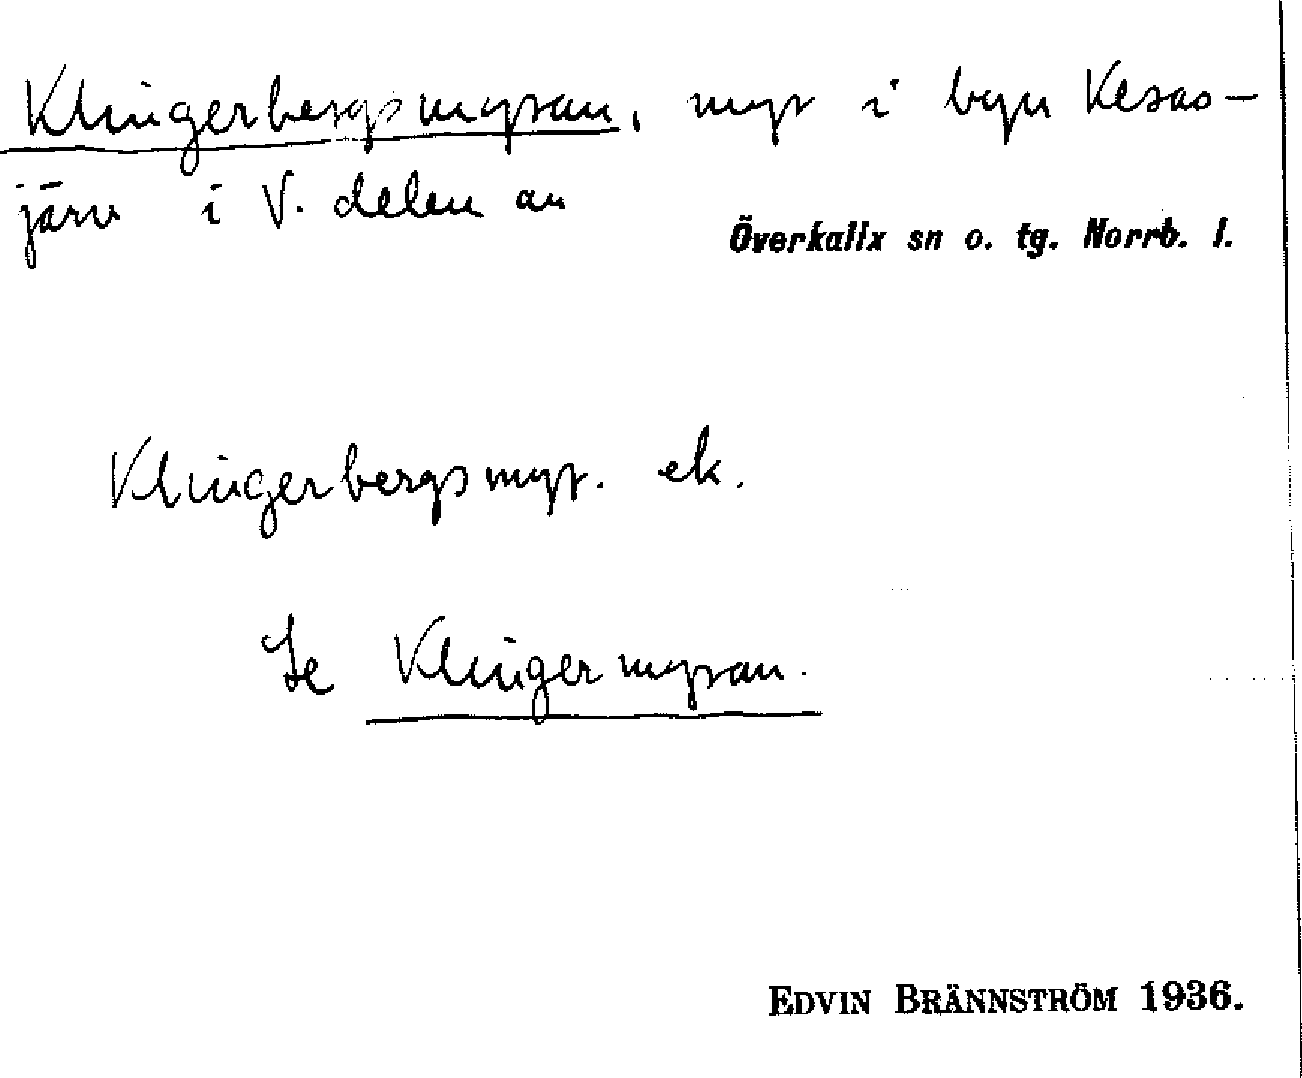 Klingerbergsmyran, myr i byn Kesas-
järv i V. delen av
Överkalix sn o. tg. Norrb. l.
Klingerbergsmyr. ek.
Se Klingermyran.
EDVIN BRÄNNSTRÖM 1936.